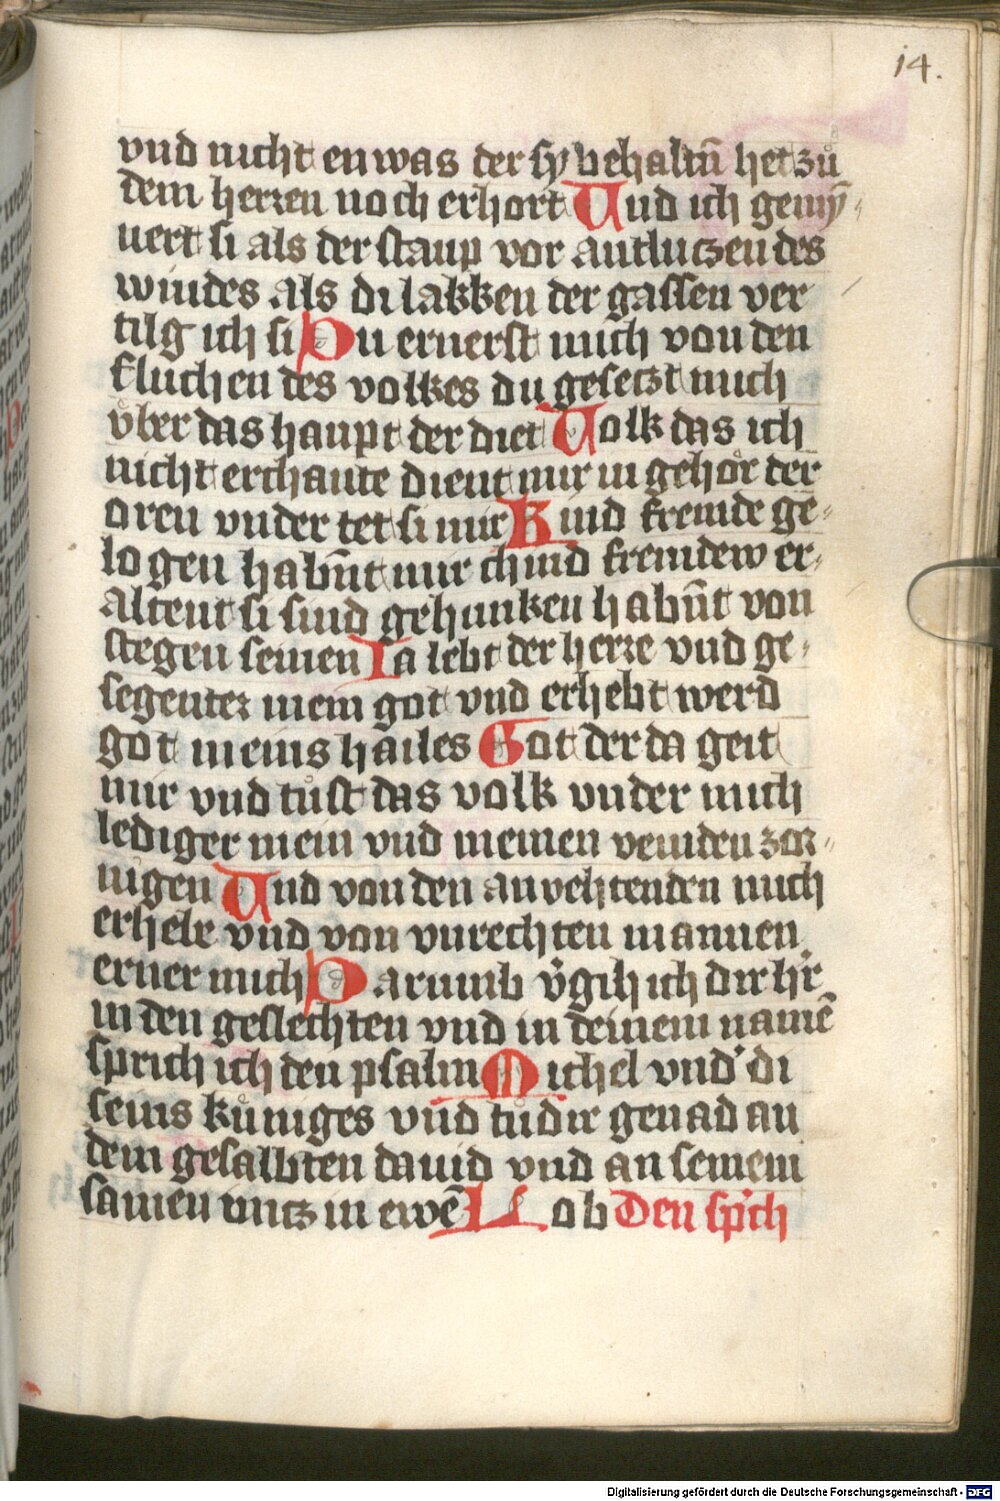 14.
vnd nicht enwas der sy behaltn̄ het zů
dem herzen noch erhort Und ich gemÿ⸗
nert si als der staup vor antluczen des
windes als di lakken der gassen ver
tilg ich si Du ernerst mich von den
fluchen des volkes du geseczt mich
v̊ber das haupt der diet Volk das ich
nicht erchante dient mir in gehör der
oren vnder tet si mir Kind fremde ge⸗
logen habn̄t mir chind fremdew er⸗
altent si sind gehunken habn̄t von
stegen seinen Ia lebt der herre vnd ge⸗
segenter mein got vnd erhebt werd
got meins hailes Got der da geit
mir vnd tůst das volk vnder mich
lediger mein vnd meinen veinden zor⸗
nigen Und von den anvehtenden mich
erhele vnd von vnrechten mannen
erner mich Darumb v̓gih ich dir hr̄
in den geslechten vnd in deinem namē
sprich ich den psalm Michel vnd di
seins kůniges vnd tů dir genad an
dem gesalbten dauid vnd an seinem
samen vntz in ewē Lob Den sp̓ch
Digitalisierung gefördert durch die Deutsche Forschungsgemeinschaft - DFG